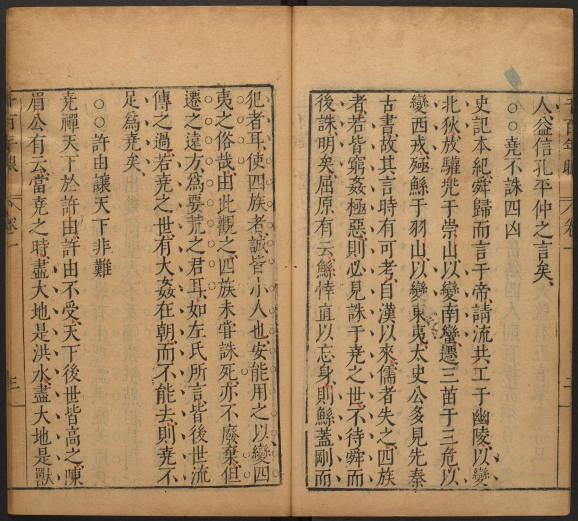 人益信孔平仲之言矣、
○○堯不誅四凶
史記本紀、舜歸而言于帝、請流共工于幽陵、以變
北狄、放驩兜于崇山、以變南蠻、遷三苗于三危、以
變西戎、殛鯀于羽山、以變東夷、太史公多見先秦
古書、故其言時有可考、自漢以來、儒者失之、四族
者、若皆窮姦極惡、則必見誅于堯之世、不待舜而
後誅明矣、屈原有云、鯀悻直以忘身、則鯀蓋剛而
犯者耳、使四族者、誠皆小人也、安能用之以變四
夷之俗哉、由此觀之、四族未嘗誅死、亦不廢棄、但
遷之遠方、為要荒之君耳、如左氏所言、皆後世流
傳之過、若堯之世、有大姦在朝而不能去、則堯不
足為堯矣、
○○許由讓天下非難
堯禪天下於許由、許由不受、天下後世皆高之、陳
眉公有云、當堯之時、盡大地是洪水、盡大地是獸
卷一
三